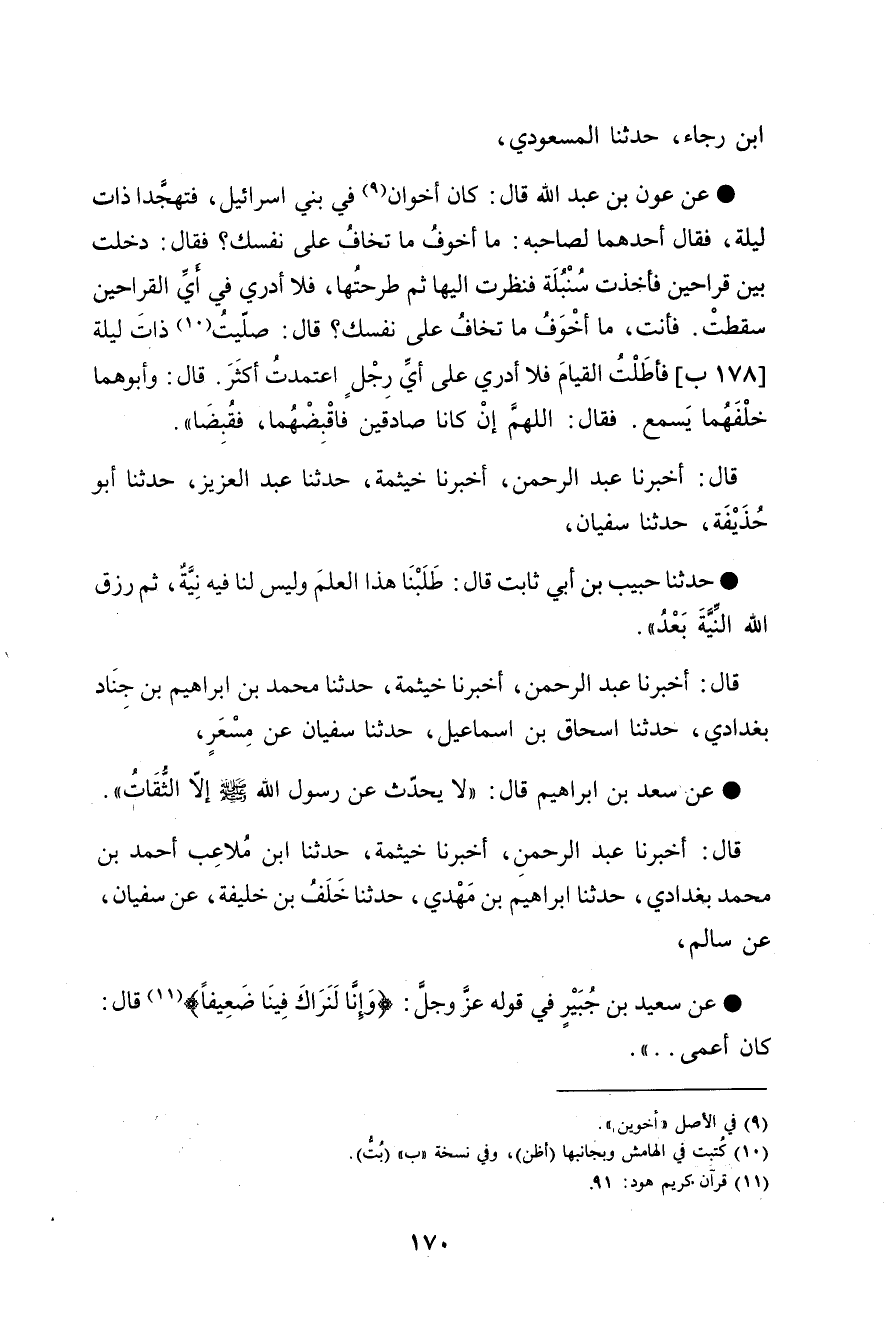 ابن رجاء، حدثنا المسعودي،
● عن عون بن عبد الله قال: كان أخوان(٩) في بني اسرائيل، فتهجَّدا ذات
ليلة، فقال أحدهما لصاحبه: ما أخوفُ ما تخافُ على نفسك؟ فقال: دخلت
بين قراحين فأخذت سُنْبُلَة فنظرت اليها ثم طرحتُها، فلا أدري في أَيِّ القراحين
سقطتْ. فأنت، ما أخْوَفُ ما تخافُ على نفسك؟ قال: صلّيتُ(١٠) ذاتَ ليلة
[١٧٨ ب] فأطَلْتُ القيامَ فلا أدري على أيِّ رِجْلٍ اعتمدتُ أكثَرَ. قال: وأبوهما
خلْفَهُما يَسمع. فقال: اللهمَّ إنْ كانا صادقين فاقْبِضْهُما، فقُبِضَا».
قال: أخبرنا عبد الرحمن، أخبرنا خيثمة، حدثنا عبد العزيز، حدثنا أبو
حُذَيْفَة، حدثنا سفيان،
● حدثنا حبيب بن أبي ثابت قال: طَلَبْنَا هذا العلمَ وليس لنا فيه نِيَّةٌ، ثم رزق
الله النِّيَّةَ بَعْدُ».
قال: أخبرنا عبد الرحمن، أخبرنا خيثمة، حدثنا محمد بن ابراهيم بن جِنَاد
بغدادي، حدثنا اسحاق بن اسماعيل، حدثنا سفيان عن مِسْعَرٍ،
● عن سعد بن ابراهيم قال: «لا يحدّث عن رسول الله ﷺ إلّا الثُّقَاتُ».
قال: أخبرنا عبد الرحمن، أخبرنا خيثمة، حدثنا ابن مُلاعِب أحمد بن
محمد بغدادي، حدثنا ابراهيم بن مَهْدي، حدثنا خَلَفُ بن خليفة، عن سفيان،
عن سالم،
● عن سعيد بن جُبَيْرٍ في قوله عزَّ وجلَّ: ﴿وَإِنَّا لَنَرَاكَ فِينَا ضَعِيفاً﴾(١١) قال:
كان أعمى..».
(٩) في الأصل «أخوين».
(١٠) كُتبت في الهامش وبجانبها (أظن)، وفي نسخة «ب» (بُتُّ).
(١١) قرآن كريم هود: ٩١.
١٧٠